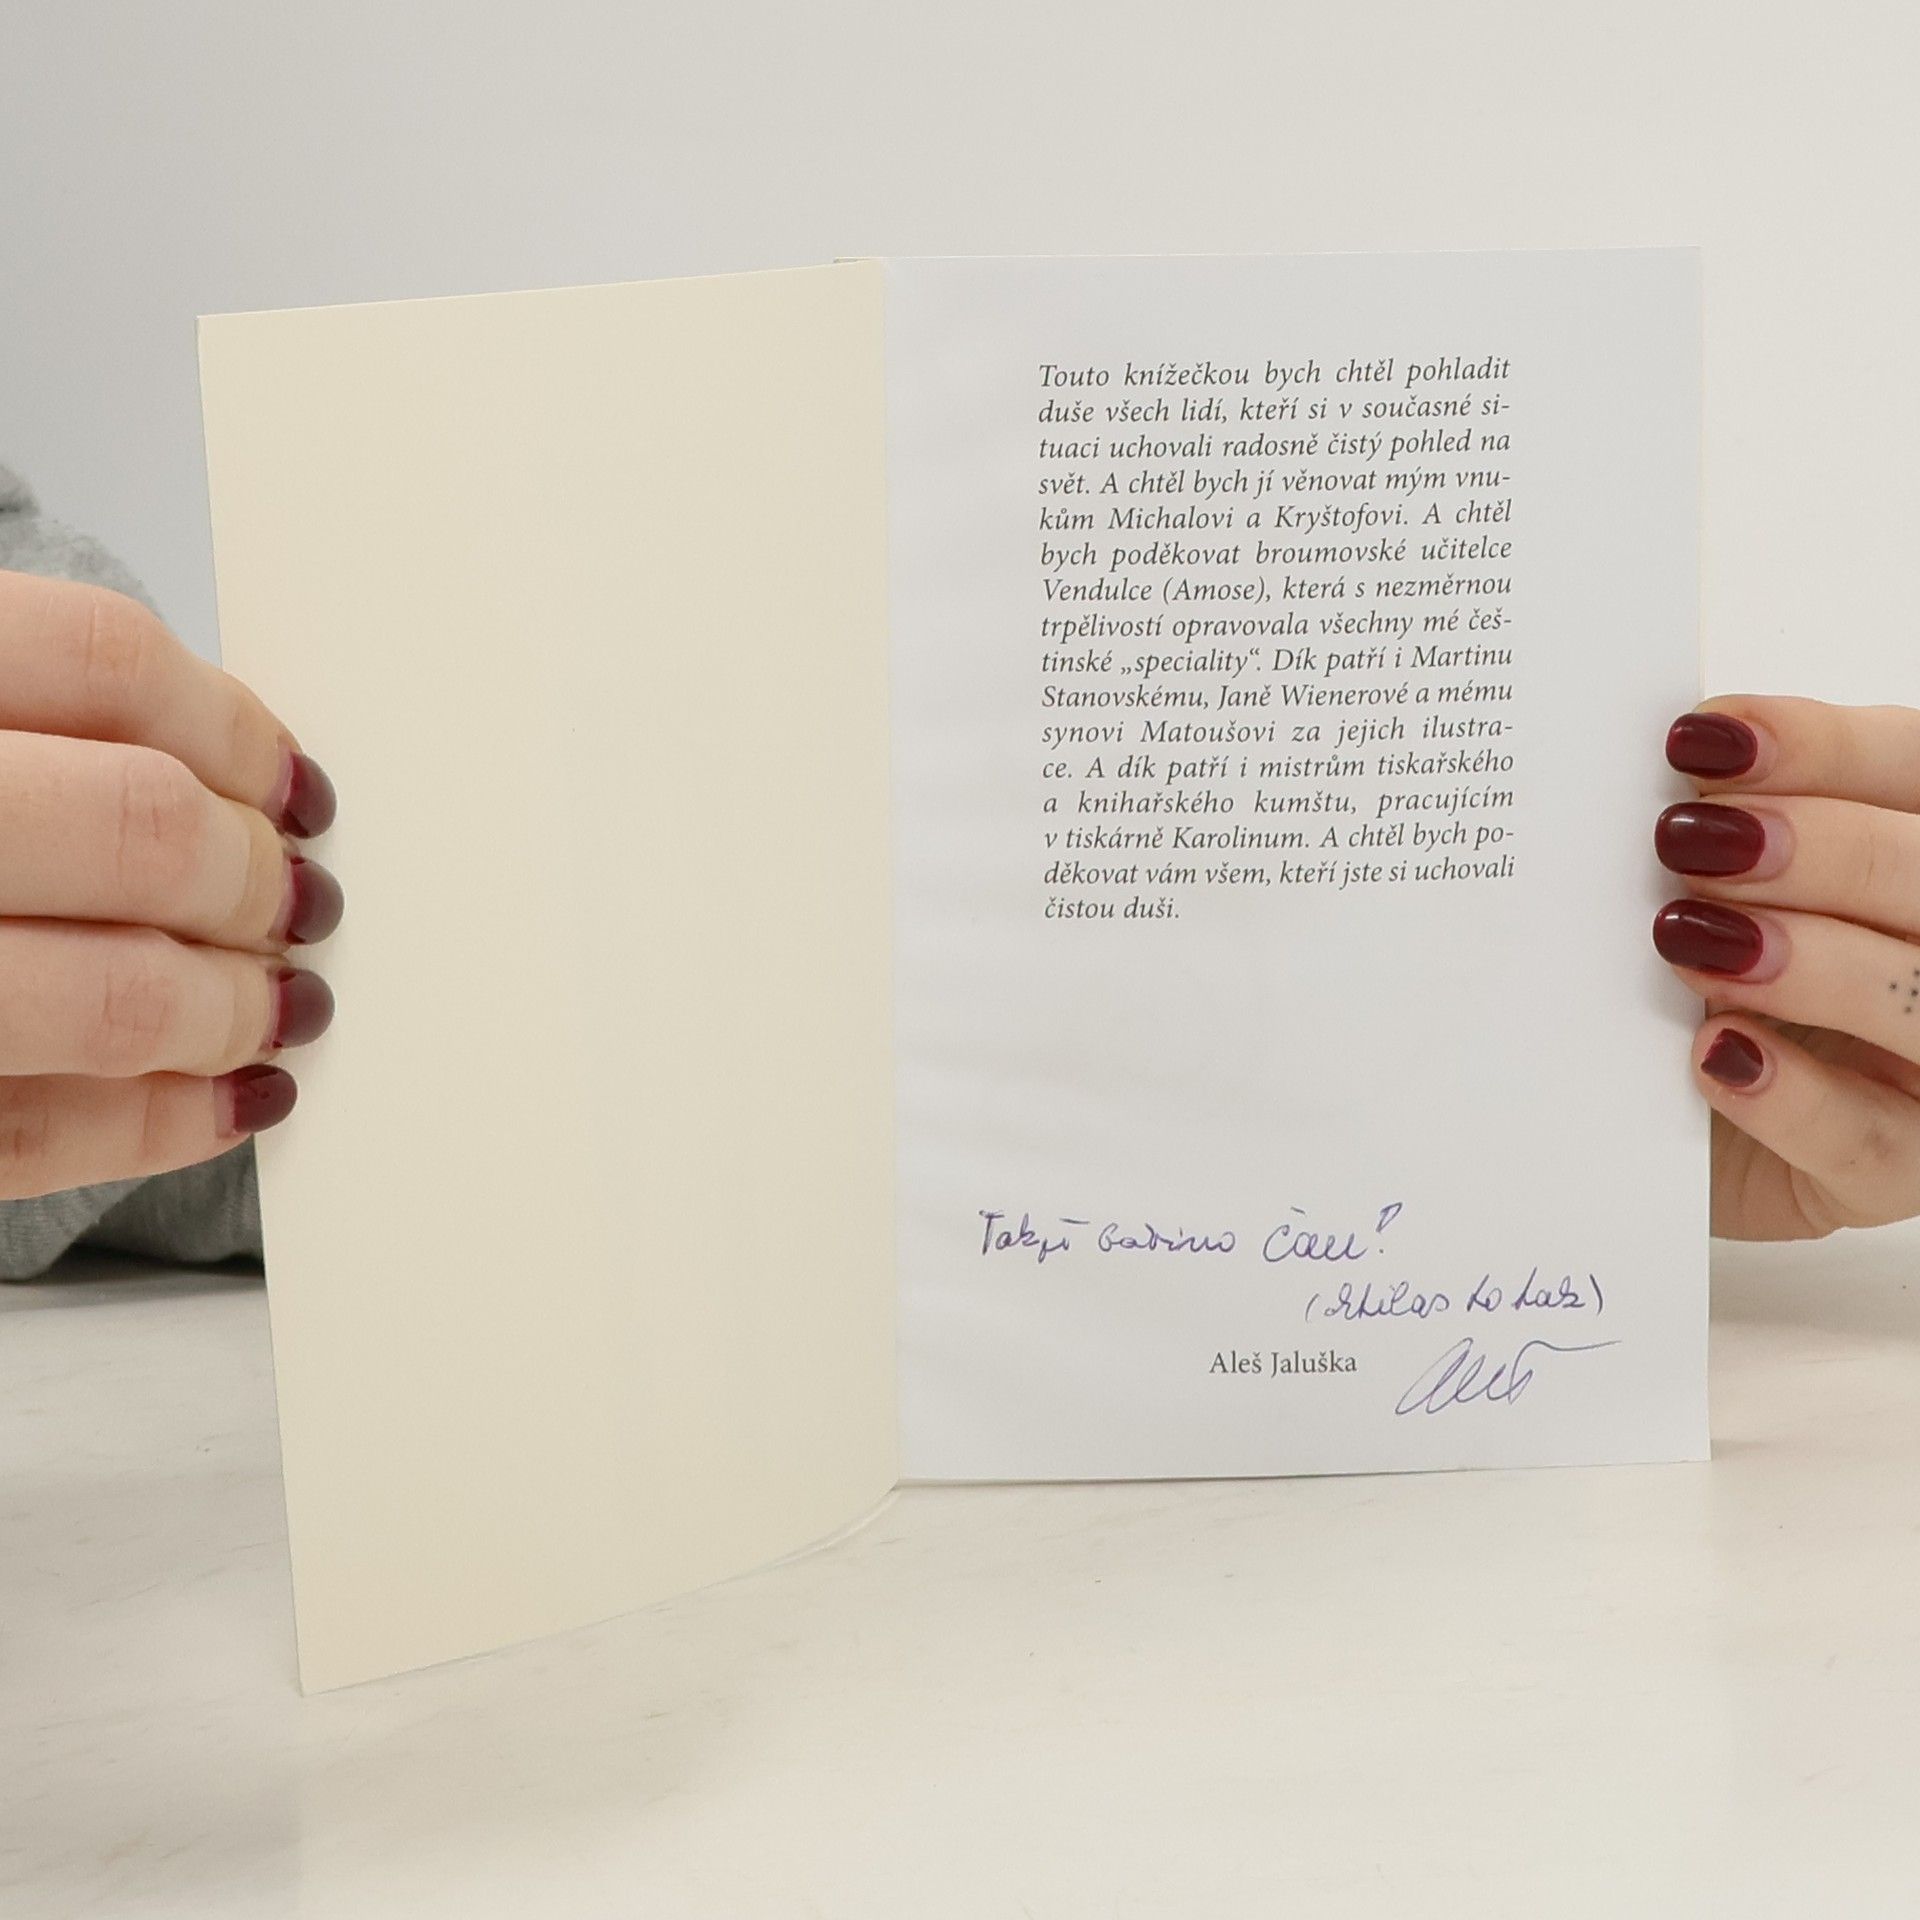 Touto knížečkou bych chtěl pohladit
duše všech lidí, kteří si v současné si-
tuaci uchovali radosně čistý pohled na
svět. A chtěl bych jí věnovat mým vnu-
kům Michalovi a Kryštofovi. A chtěl
bych poděkovat broumovské učitelce
Vendulce (Amose), která s nezměrnou
trpělivostí opravovala všechny mé češ-
tinské „speciality“. Dík patří i Martinu
Stanovskému, Janě Wienerové a mému
synovi Matoušovi za jejich ilustra-
ce. A dík patří i mistrům tiskařského
a knihařského kumštu, pracujícím
v tiskárně Karolinum. A chtěl bych po-
děkovat vám všem, kteří jste si uchovali
čistou duši.
Aleš Jaluška
Aleš